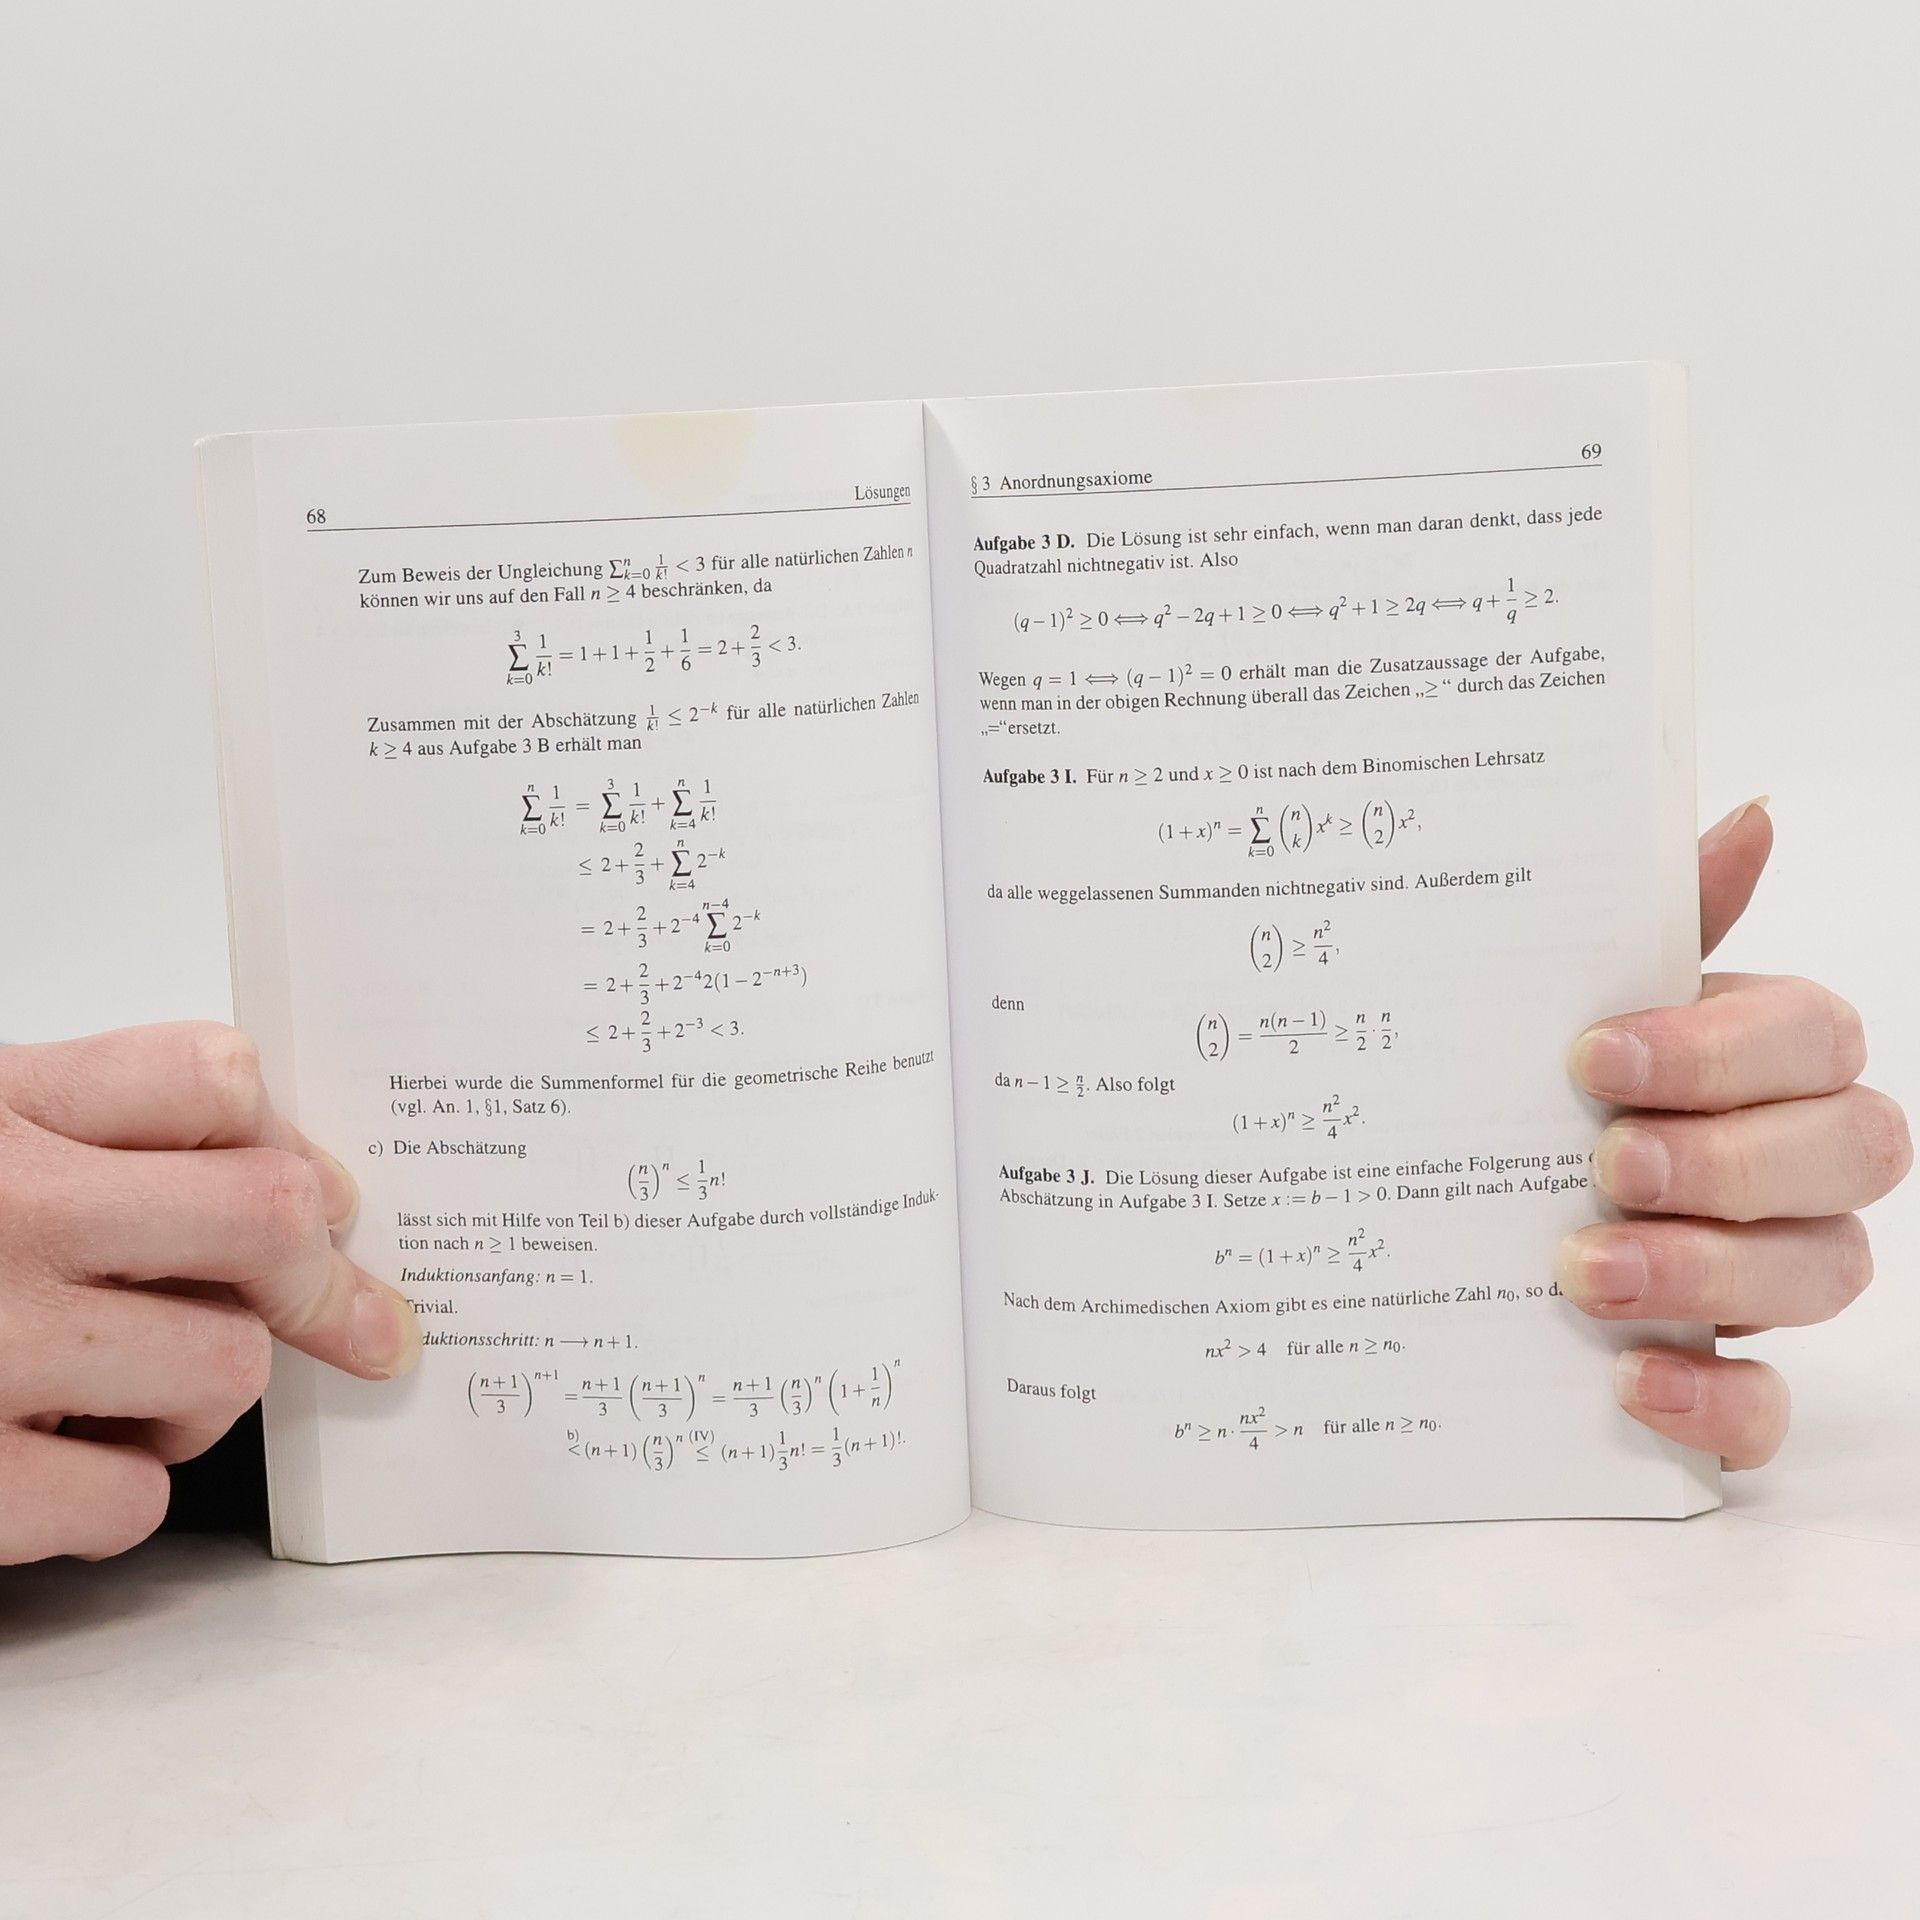 68 Lösungen
Zum Beweis der Ungleichung ∑_{k=0}^{n} 1/k! < 3 für alle natürlichen Zahlen n
können wir uns auf den Fall n ≥ 4 beschränken, da
∑_{k=0}^{3} 1/k! = 1 + 1 + 1/2 + 1/6 = 2 + 2/3 < 3.
Zusammen mit der Abschätzung 1/k! ≤ 2^{−k} für alle natürlichen Zahlen
k ≥ 4 aus Aufgabe 3 B erhält man
∑_{k=0}^{n} 1/k! = ∑_{k=0}^{3} 1/k! + ∑_{k=4}^{n} 1/k!
≤ 2 + 2/3 + ∑_{k=4}^{n} 2^{−k}
= 2 + 2/3 + 2^{−4} ∑_{k=0}^{n−4} 2^{−k}
= 2 + 2/3 + 2^{−4}2(1 − 2^{−n+3})
≤ 2 + 2/3 + 2^{−3} < 3.
Hierbei wurde die Summenformel für die geometrische Reihe benutzt
(vgl. An. 1, §1, Satz 6).
c) Die Abschätzung
(n/3)^n ≤ 1/3 n!
lässt sich mit Hilfe von Teil b) dieser Aufgabe durch vollständige Induk-
tion nach n ≥ 1 beweisen.
Induktionsanfang: n = 1.
Trivial.
duktionsschritt: n ⟶ n + 1.
((n+1)/3)^{n+1} = (n+1)/3 ((n+1)/3)^n = (n+1)/3 (n/3)^n (1 + 1/n)^n
b) < (n+1) (n/3)^n (IV) ≤ (n+1) 1/3 n! = 1/3 (n+1)!.
§ 3 Anordnungsaxiome 69
Aufgabe 3 D. Die Lösung ist sehr einfach, wenn man daran denkt, dass jede
Quadratzahl nichtnegativ ist. Also
(q − 1)² ≥ 0 ⟺ q² − 2q + 1 ≥ 0 ⟺ q² + 1 ≥ 2q ⟺ q + 1/q ≥ 2.
Wegen q = 1 ⟺ (q − 1)² = 0 erhält man die Zusatzaussage der Aufgabe,
wenn man in der obigen Rechnung überall das Zeichen „≥“ durch das Zeichen
„=“ersetzt.
Aufgabe 3 I. Für n ≥ 2 und x ≥ 0 ist nach dem Binomischen Lehrsatz
(1 + x)^n = ∑_{k=0}^{n} (n k) x^k ≥ (n 2) x²,
da alle weggelassenen Summanden nichtnegativ sind. Außerdem gilt
(n 2) ≥ n²/4,
denn
(n 2) = n(n − 1)/2 ≥ n/2 · n/2,
da n − 1 ≥ n/2. Also folgt
(1 + x)^n ≥ n²/4 x².
Aufgabe 3 J. Die Lösung dieser Aufgabe ist eine einfache Folgerung aus
Abschätzung in Aufgabe 3 I. Setze x := b − 1 > 0. Dann gilt nach Aufgabe
b^n = (1 + x)^n ≥ n²/4 x².
Nach dem Archimedischen Axiom gibt es eine natürliche Zahl n₀, so
nx² > 4 für alle n ≥ n₀.
Daraus folgt
b^n ≥ n · nx²/4 > n für alle n ≥ n₀.